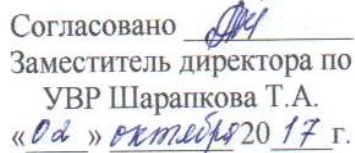 Согласовано
Заместитель директора по
УВР Шарапкова Т.А.
«02» октября 2017 г.